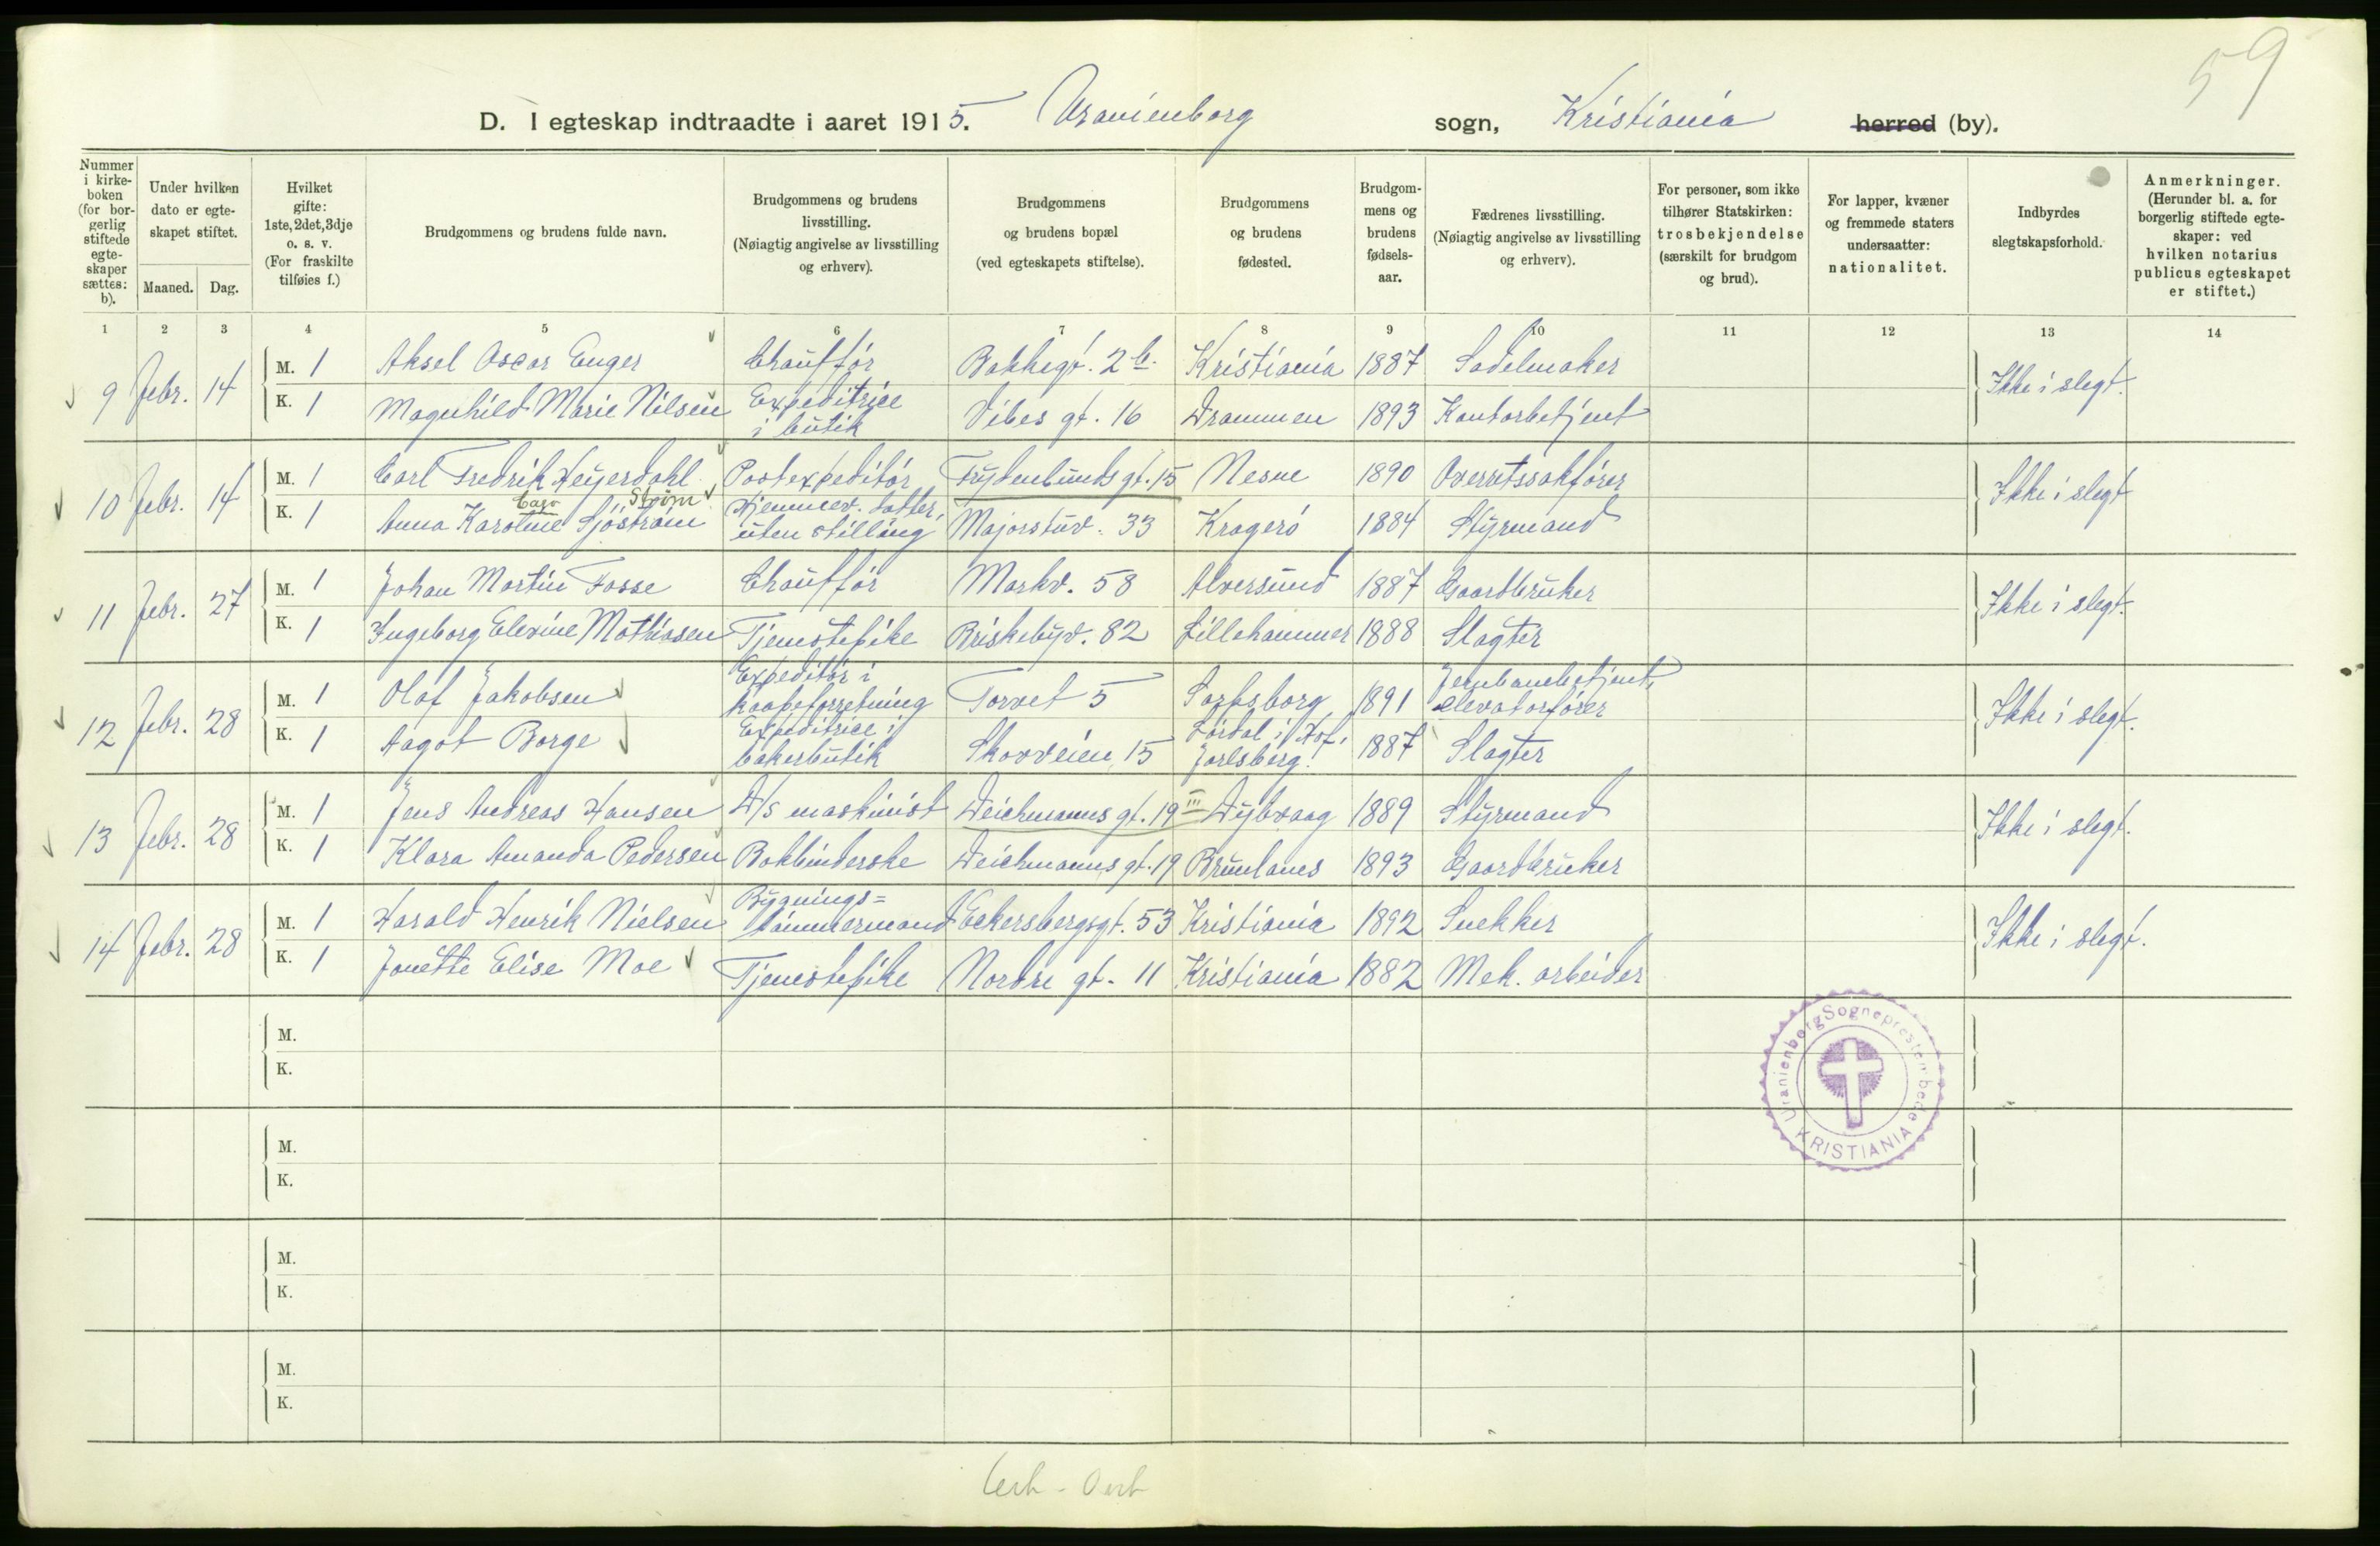 59
D. I egteskap indtraadte i aaret 1915. Uranienborg sogn, Kristiania herred (by).
Nummer i kirke-boken (for bor-gerlig stiftede egte-skaper sættes: b).
Under hvilken dato er egte-skapet stiftet.
Maaned. Dag.
Hvilket gifte: 1ste, 2det, 3dje o. s. v. (For fraskilte tilføies f.)
Brudgommens og brudens fulde navn.
Brudgommens og brudens livsstilling. (Nøiagtig angivelse av livsstilling og erhverv).
Brudgommens og brudens bopæl (ved egteskapets stiftelse).
Brudgommens og brudens fødested.
Brudgom-mens og brudens fødsels-aar.
Fædrenes livsstilling. (Nøiagtig angivelse av livsstilling og erhverv).
For personer, som ikke tilhører Statskirken: trosbekjendelse (særskilt for brudgom og brud).
For lapper, kvæner og fremmede staters undersaatter: nationalitet.
Indbyrdes slegtskapsforhold.
Anmerkninger. (Herunder bl. a. for borgerlig stiftede egte-skaper: ved hvilken notarius publicus egteskapet er stiftet.)
1 2 3 4 5 6 7 8 9 10 11 12 13 14
9 Febr. 14 M. 1 Aksel Oscar Enger Chauffør Bakkegt. 2 b. Kristiania 1887 Sadelmaker Ikke i slegt.
K. 1 Magnhild Marie Nilsen Expeditrice i butik Vibes gt. 16 Drammen 1893 Kontorbetjent
10 Febr. 14 M. 1 Carl Fredrik Heyerdahl Postexpeditør Frydenlunds gt. 15 Nesne 1890 Overretssakfører Ikke i slegt
Strøm
K. 1 Anna Karoline Sjöström Hjemmev. datter, uten stilling Majorstuv. 33 Kragerö 1884 Styrmand
11 Febr. 27 M. 1 Johan Martin Fosse Chauffør Markv. 58 Alversund 1887 Gaardbruker Ikke i slegt.
K. 1 Ingeborg Elevine Mathissen Tjenestepike Briskebyv. 82 Lillehammer 1888 Slagter
12 Febr. 28 M. 1 Olaf Jakobsen Expeditør i kaapeforretning Torvet 5 Sarpsborg 1891 Jernbanebetjent, elevatorfører Ikke i slegt.
K. 1 Aagot Borge Expeditrice i bakerbutik Skovveien 15 i Hof, Jarlsberg. 1887 Slagter
13 Febr. 28 M. 1 Jens Andreas Hansen D/s maskinist Deichmanns gt. 19 III Dybvaag 1889 Styrmand Ikke i slegt.
K. 1 Klara Amanda Pedersen Bokbinderske Deichmanns gt. 19 Brunlanes 1893 Gaardbruker
14 Febr. 28 M. 1 Harald Henrik Nielsen Bygnings= tømmermand Eckersbergsgt. 53 Kristiania 1892 Snekker Ikke i slegt.
K. 1 Jonette Elise Moe Tjenestepike Nordre gt. 11 Kristiania 1882 Mek. arbeider
M.
K.
Uranienborg Sogneprestembede
KRISTIANIA
M.
K.
M.
K.
M.
K.